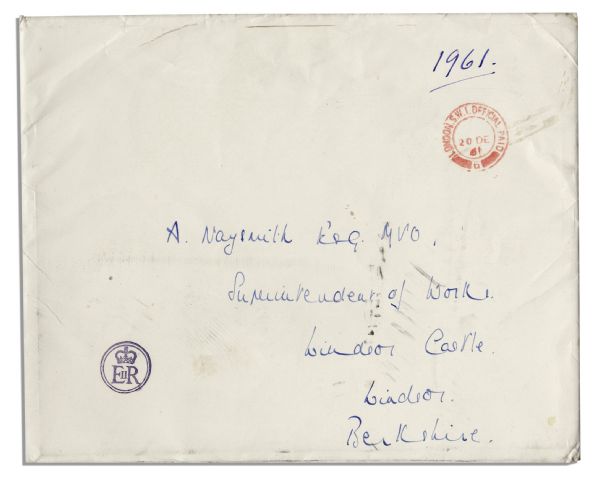 1961.
LONDON S.W.1. OFFICIAL PAID
20 DE
61
A. Naysmith Esq. MVO.
Superintendent of Works.
Windsor Castle.
Windsor.
Berkshire.
EIIR